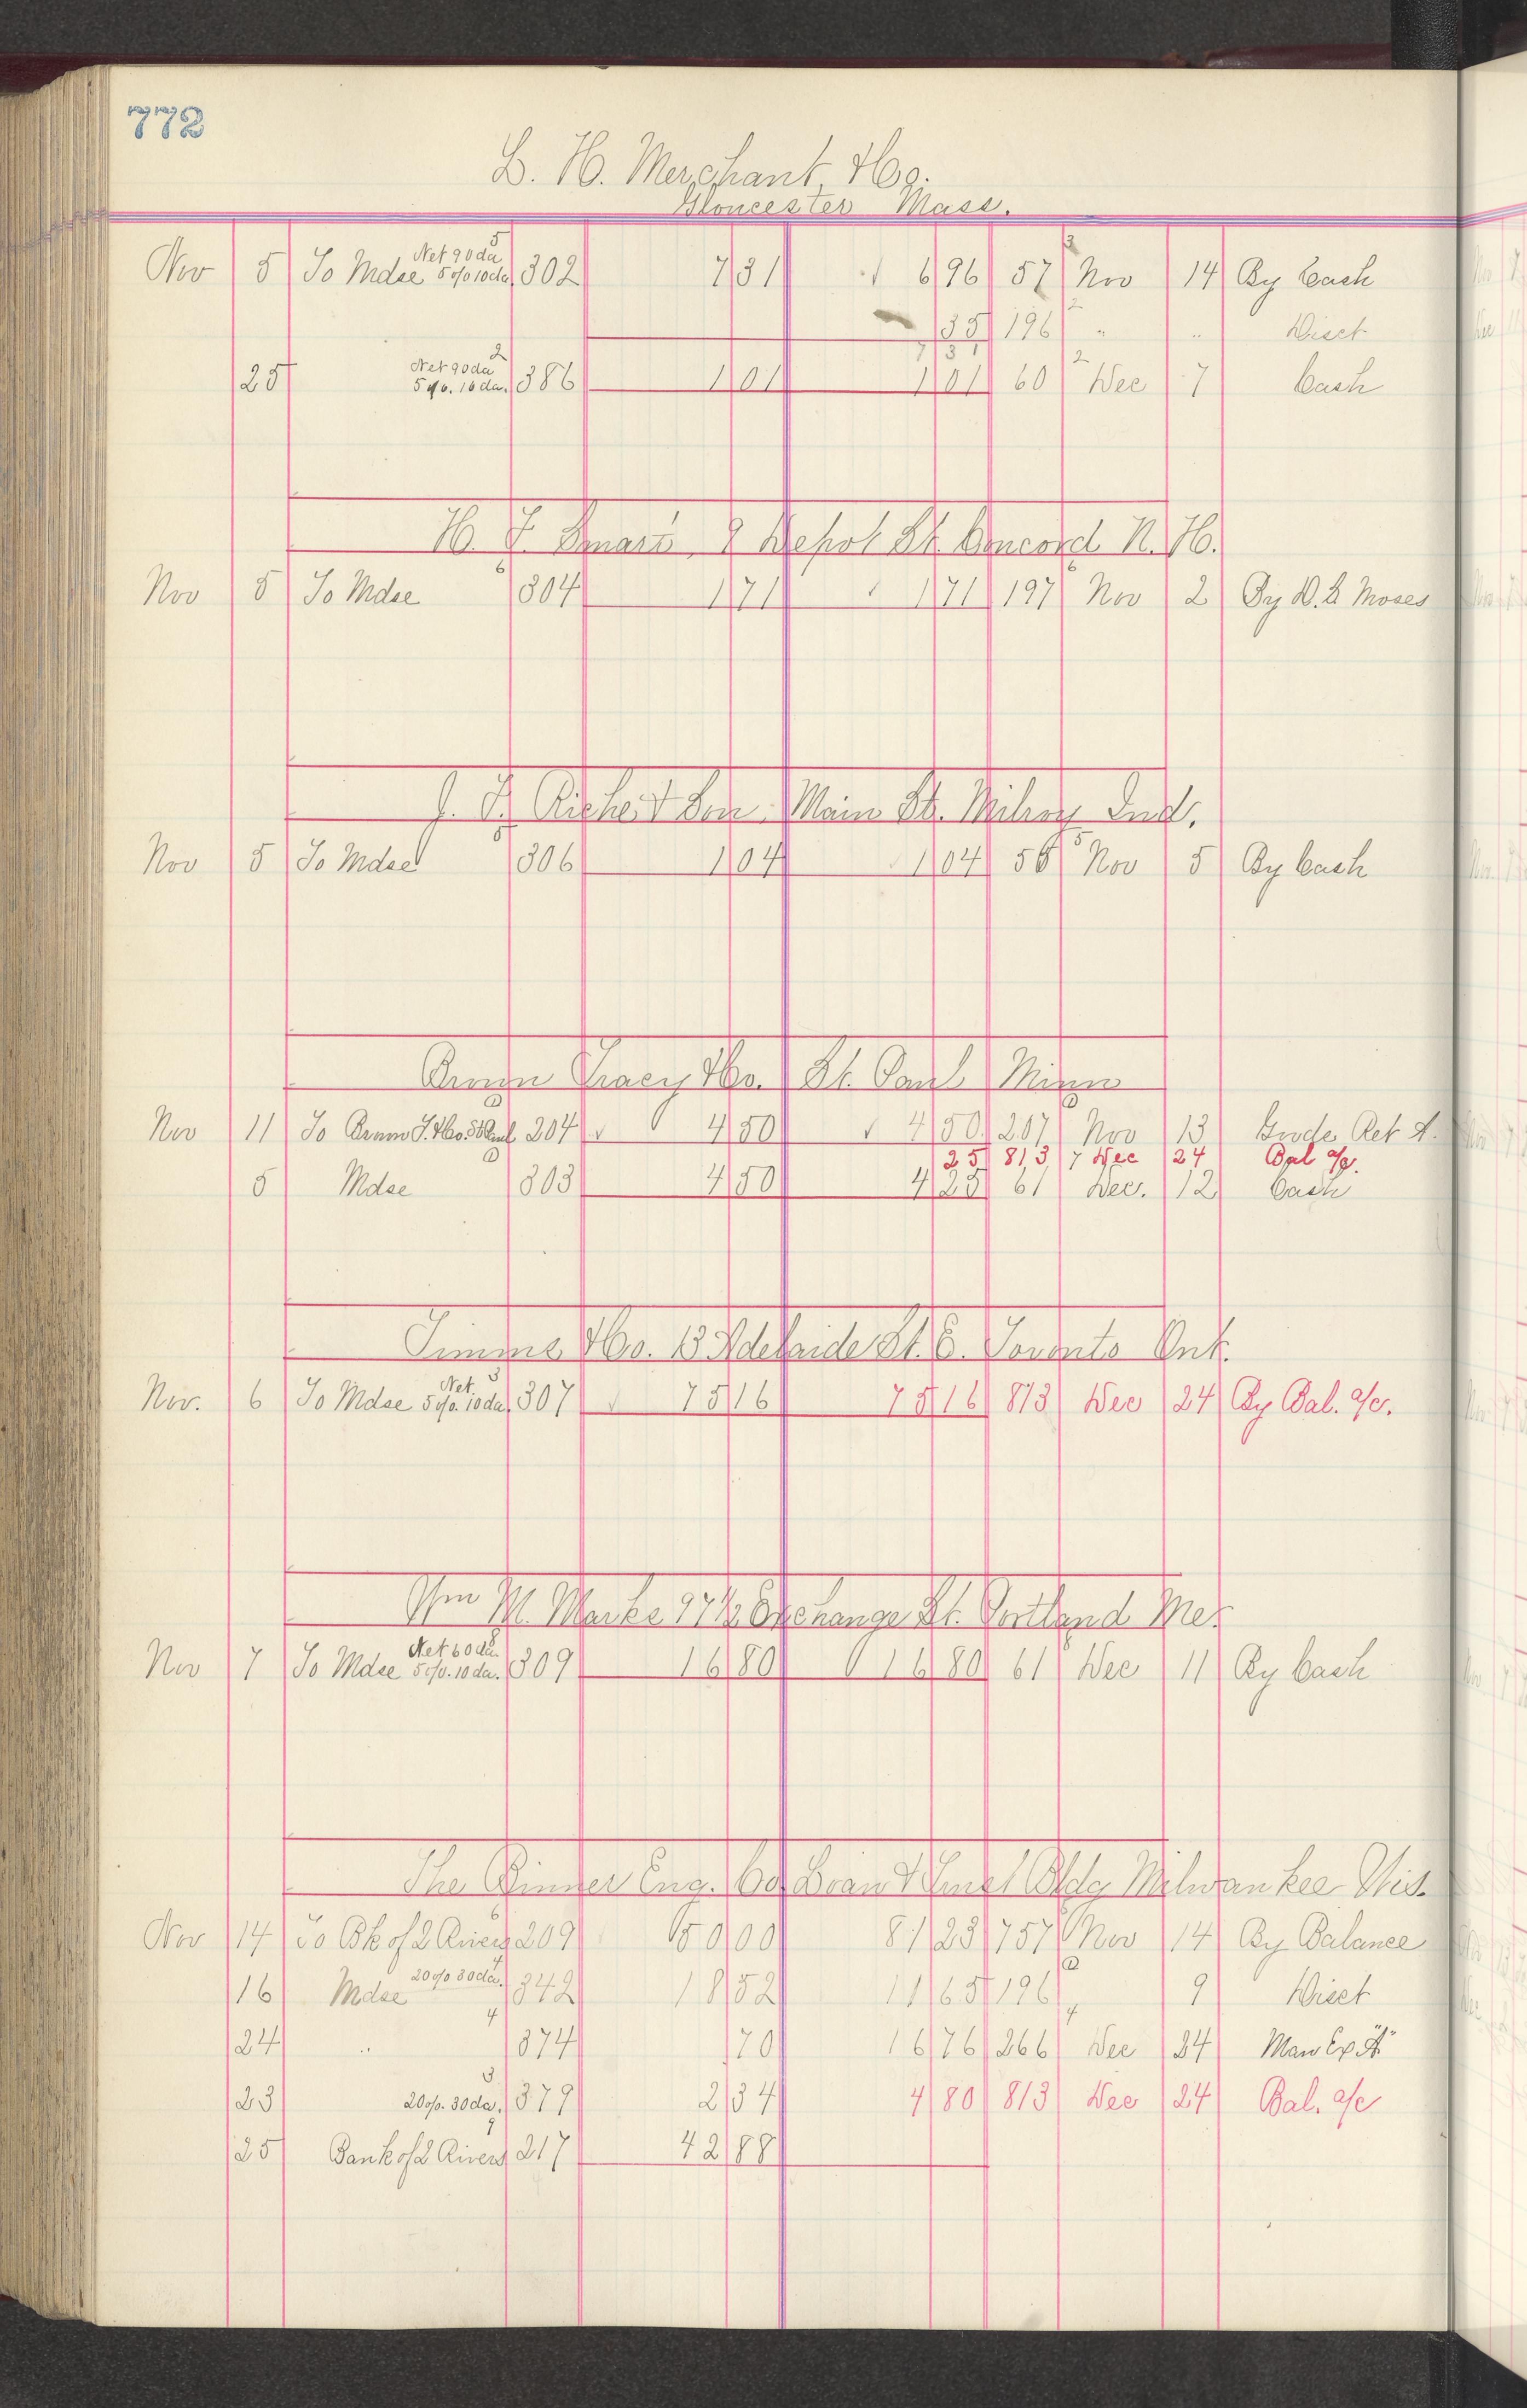 772
L. H. Merchant & Co.
Gloucester Mass.
5 3
Net 90 da
Nov 5 To Mdse 5 o/o 10 da 302 7 31 6 96 57 Nov 14 By Cash
2
35 196 " " Disct
2 7 31 2
Net 90 da
25 5 o/o. 10 da. 386 1 01 1 01 60 Dec 7 Cash
H. F. 9 Depot St. Concord N. H.
6 6
Nov 5 To Mdse 304 1 71 1 71 197 Nov 2 By D. L Moses
J. F. & Son Main St. Milroy Ind.
5 5
Nov 5 To Mdse 306 1 04 1 04 56 Nov 5 By Cash
Tracy & Co. St. Paul Minn
Nov 11 To T. & Co. St Paul 204 4 50 4 50 207 Nov 13 Gvode Ret A.
25 813 7 Dec 24 Bal a/c.
5 Mdse 303 4 50 4 25 61 Dec. 12 Cash
Timms & Co. 13 Adelaide St. E. Toronto Ont.
Net. 3
Nov. 6 To Mdse 5 o/o. 10 da. 307 75 16 75 16 813 Dec 24 By Bal. a/c.
Wm M. Marks 97½ Exchange St. Portland Me.
Net 60 da.
Nov 7 To Mdse 5 o/o. 10 da. 309 16 80 16 80 61 Dec 11 By Cash
The Binner Eng. Co. Loan & Bldg Milwaukee Wis.
6
Nov 14 To Bk of 2 Rivers 209 50 00 81 23 757 Nov 14 By Balance
4
20 o/o 30 da.
16 Mdse 342 18 52 11 65 196 9 Disct
4 4
24 " 374 70 16 76 266 Dec 24 Man Ex "A"
3
23 20 o/o. 30 da. 379 2 34 4 80 813 Dec 24 Bal. a/c
9
25 Bank of 2 Rivers 217 42 88